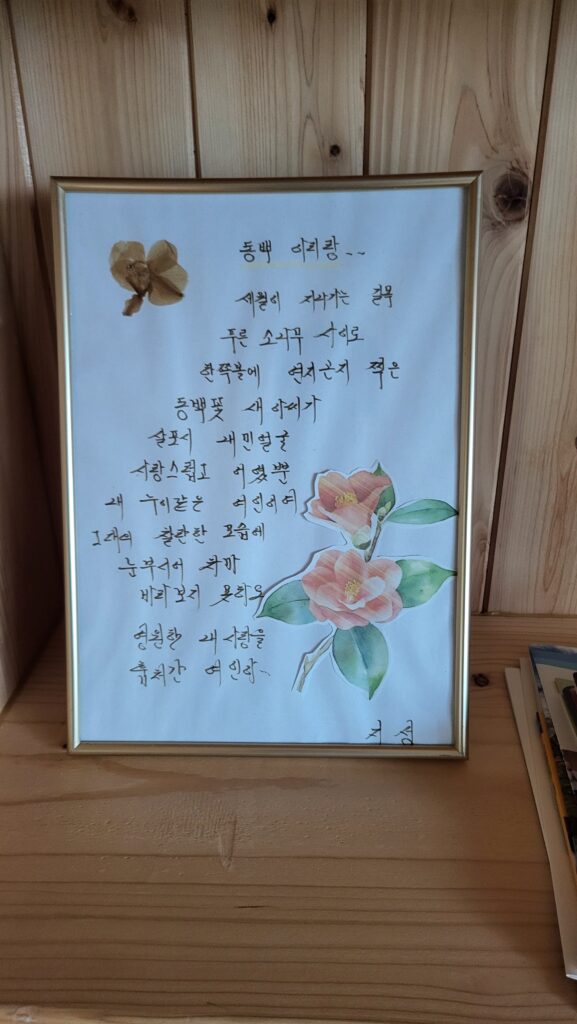 동백 아리랑~~
세월이 지나가는 길목
푸른 소나무 사이로
한쪽볼에 연지곤지 찍은
동백꽃 새아씨가
살포시 내민얼굴
사랑스럽고 어여뿐
내 누이같은 여인이여
그대의 찬란한 모습에
눈부시어 차마
바라보지 못하오
영원한 내사랑을
훔쳐간 여인아~
지성